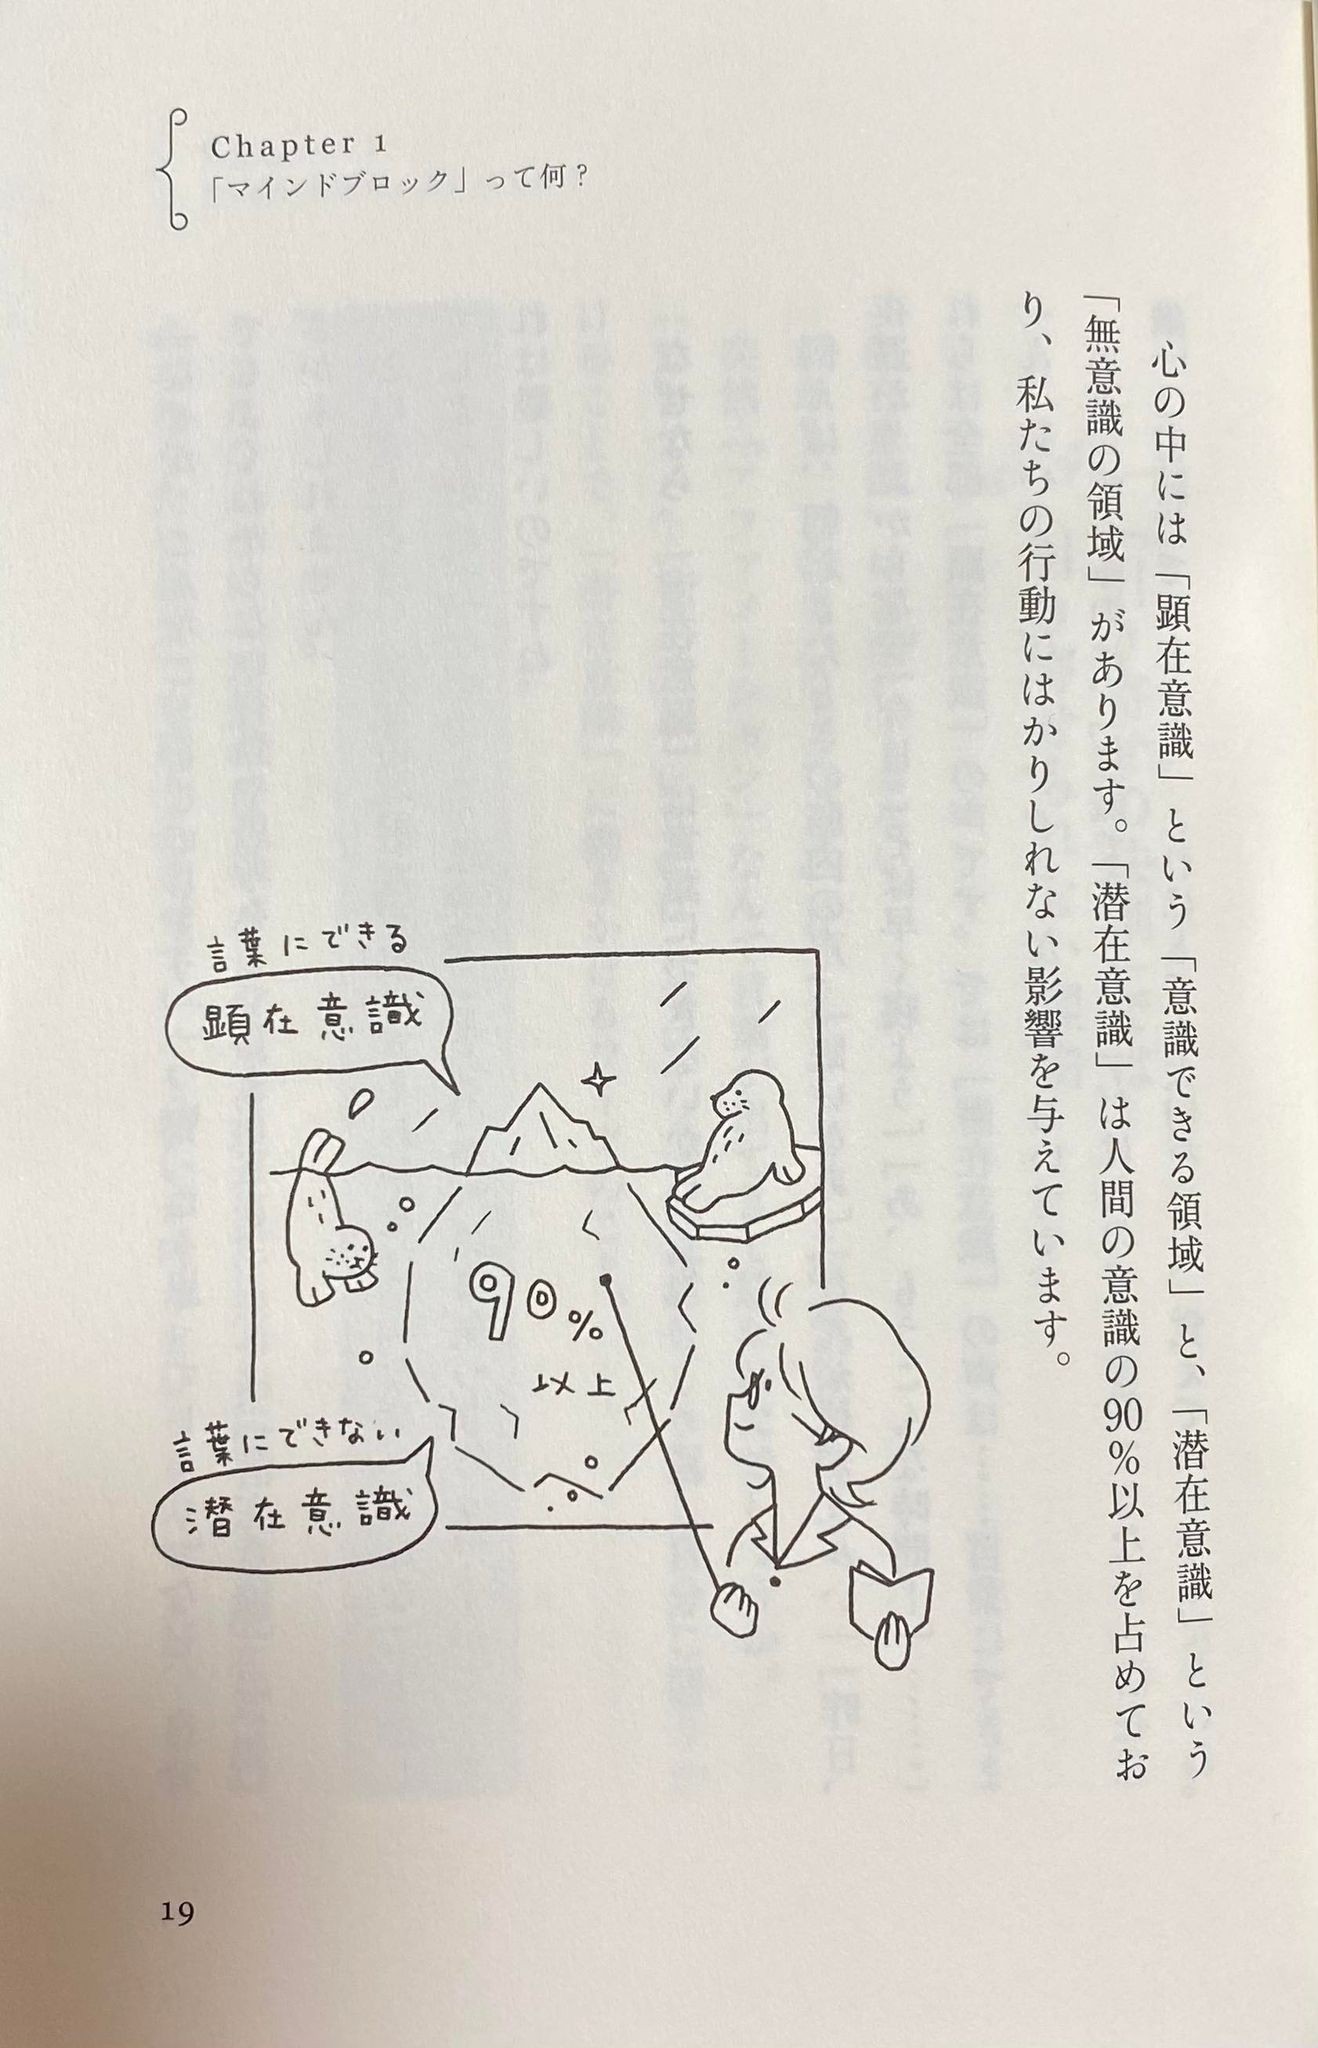 Chapter 1
「マインドブロック」って何？
心の中には「顕在意識」という「意識できる領域」と、「潜在意識」という
「無意識の領域」があります。「潜在意識」は人間の意識の90%以上を占めてお
り、私たちの行動にはかりしれない影響を与えています。
言葉にできる
顕在意識
90%
以上
言葉にできない
潜在意識
19